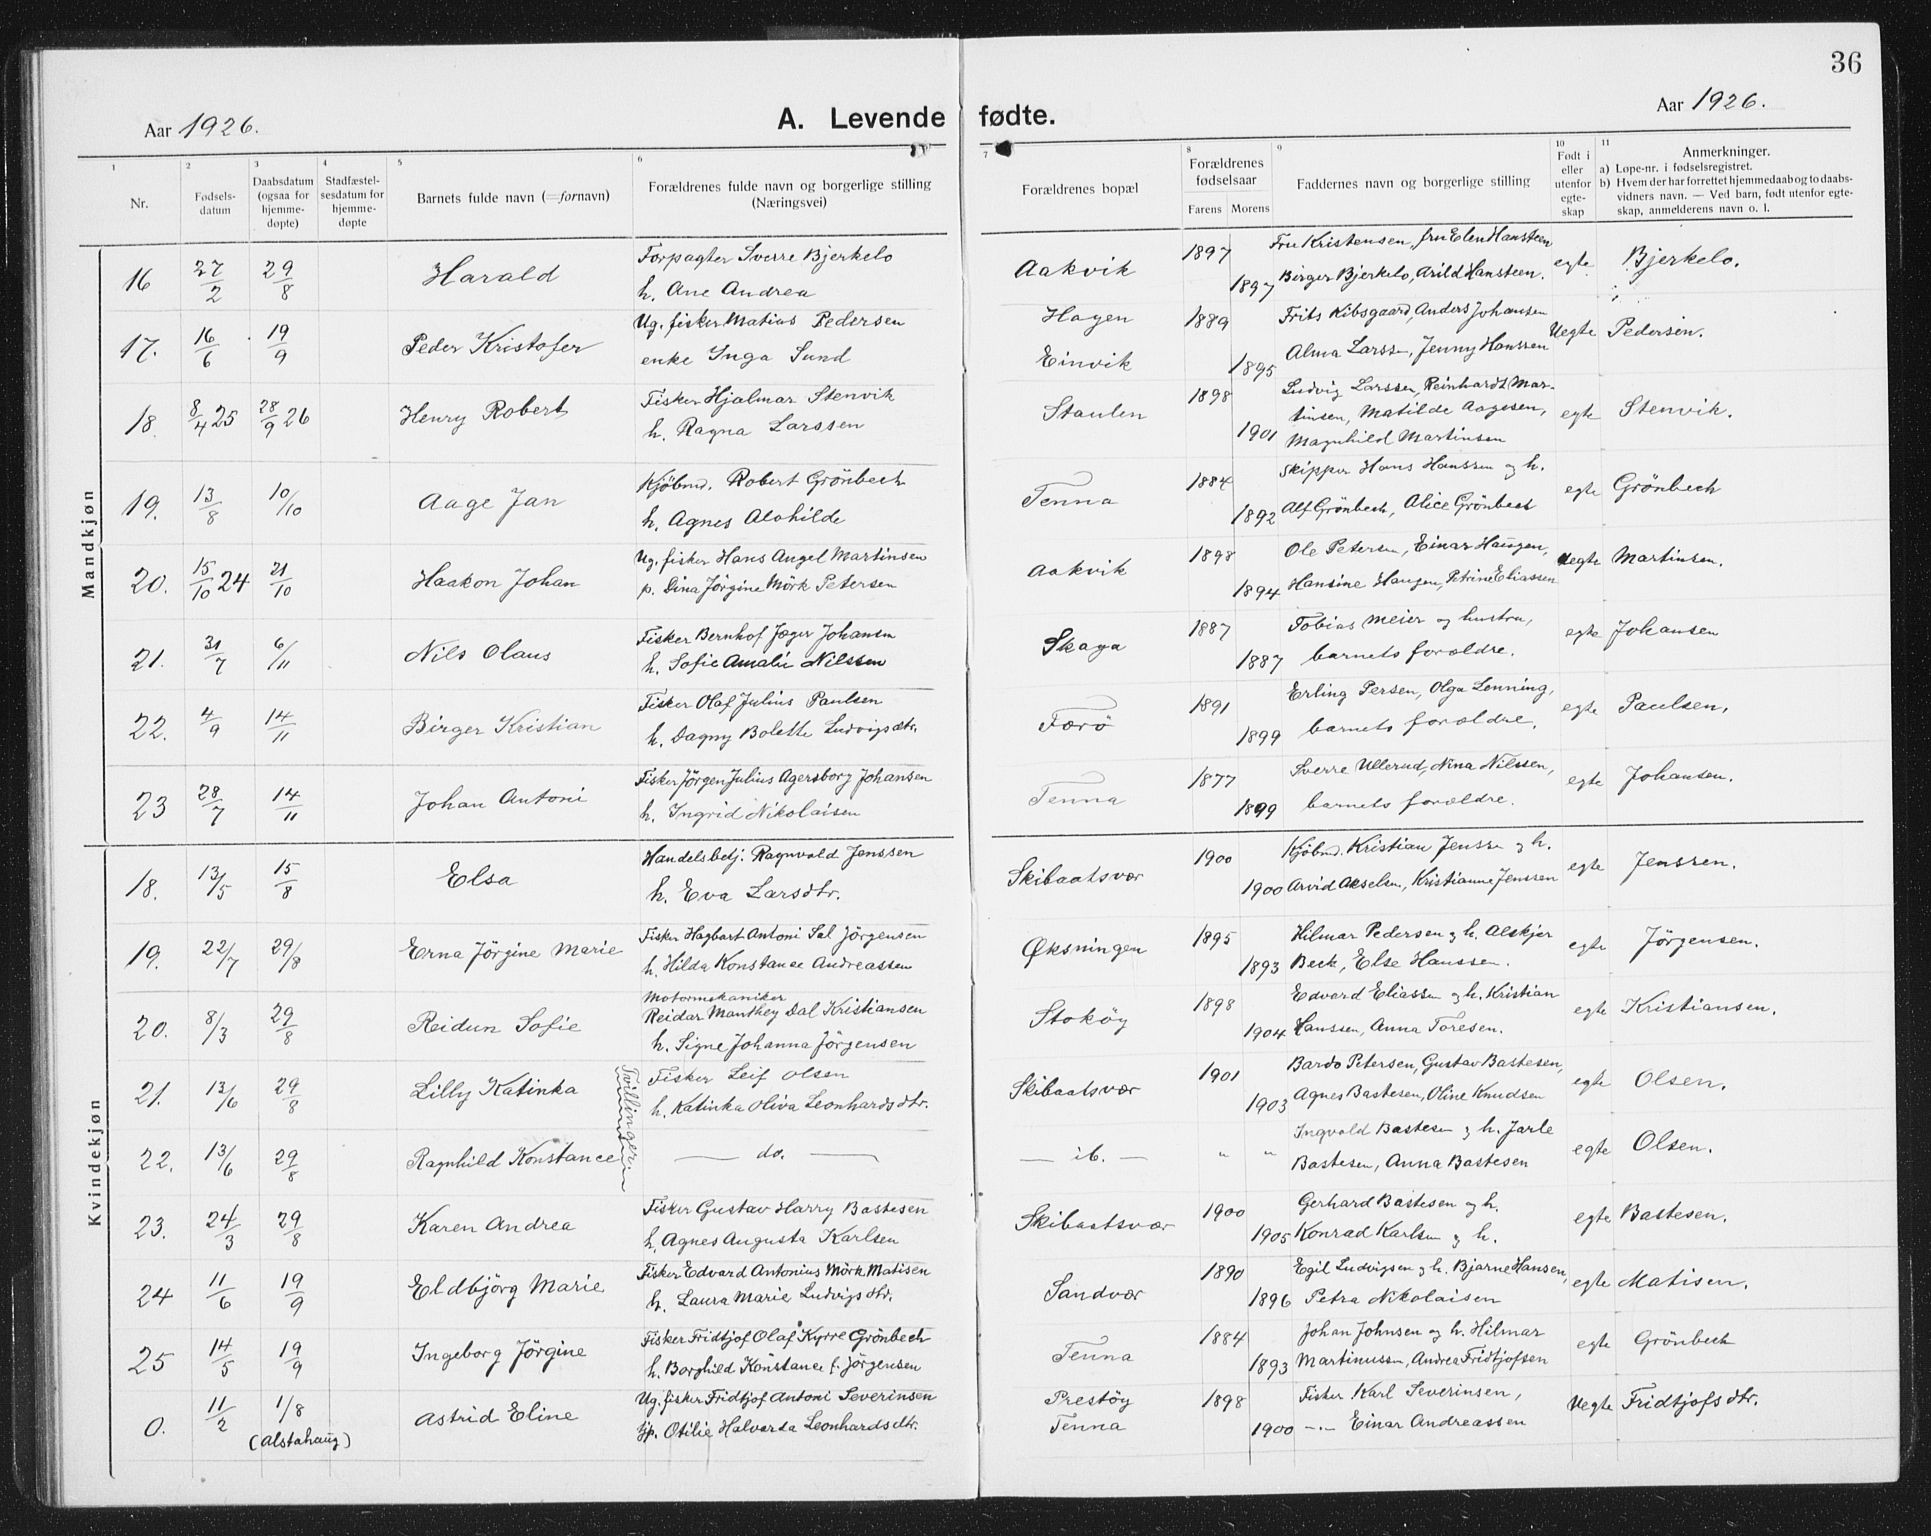 36
Aar 1926.
A. Levende fødte.
Aar 1926.
1 2 3 4 5 6 7 8 9 10 11
Nr.
Fødsels-
datum
Daabsdatum
(ogsaa for
hjemme-
døpte)
Stadfæstel-
sesdatum for
hjemme-
døpte
Barnets fulde navn (=fornavn)
Forældrenes fulde navn og borgerlige stilling
(Næringsvei)
Forældrenes bopæl
Forældrenes
fødselsaar
Farens Morens
Faddernes navn og borgerlige stilling
Født i
eller
utenfor
egte-
skap
Anmerkninger.
a) Løpe-nr. i fødselsregistret.
b) Hvem der har forrettet hjemmedaab og to daabs-
vidners navn. — Ved barn, født utenfor egte-
skap, anmelderens navn o. l.
Mandkjøn
16 27/2 29/8 Harald Forpagter Sverre Bjerkelo Aakvik 1897 Fru Kristensen, fru Elen Hansteen egte Bjerkelo.
h. Ane Andrea 1897 Birger Bjerkelo, Arild Hansteen.
17. 16/6 19/9 Peder Kristofer Ug. fisker Matias Pedersen Hagen 1889 Frits Kibsgaard, Anders Johansen Uegte Pedersen.
enke Inga Sund Einvik 1895 Alma Larssen, Jenny Hanssen
18. 8/4 25 28/9 26 Henry Robert Fisker Hjalmar Stenvik Staulen 1898 Ludvig Larssen, Reinhardt Mar-
tinsen, Matilde Aagesen, egte Stenvik.
h. Ragna Larssen 1901 Magnhild Martinsen
19. 13/8 10/10 Aage Jan Kjöbmd. Robert Grönbech Tenna 1884 Skipper Hans Hanssen og h. egte Grönbech
h. Agnes Alvhilde 1892 Alf Grönbech, Alice Grönbech
20. 15/10 24 21/10 Haakon Johan Ug. fisker Hans Angel Martinsen Aakvik 1898 Ole Petersen, Einar Haugen, Uegte Martinsen.
p. Dina Jörgine Mörk Petersen 1894 Hansine Haugen, Petrine Eliassen
21. 31/7 6/11 Nils Olaus Fisker Bernhof Jæger Johansen Skaga 1887 Tobias Meier og hustru, egte Johansen
h. Sofie Amalie Nilssen 1887 barnets forældre.
22. 4/9 14/11 Birger Kristian Fisker Olaf Julius Paulsen Færö 1891 Erling Persen, Olga Lenning, egte Paulsen,
h. Dagny Bolette Ludvigsdtr. 1899 barnets forældre.
23 28/7 14/11 Johan Antoni Fisker Jörgen Julius Agersborg Johansen Tenna 1877 Sverre Ullerud, Nina Nilssen, egte Johansen.
h. Ingrid Nikolaisen 1899 barnets forældre.
Kvindekjøn
18. 13/5 15/8 Elsa Handelsbetj. Ragnvald Jenssen Skibaatsvær 1900 Kjöbmd. Kristian Jenssen og h. egte Jenssen.
h. Eva Larsdtr. 1900 Arvid Akselsen, Kristianne Jenssen
19. 22/7 29/8 Erna Jörgine Marie Fisker Hagbart Antoni Sal Jörgensen Øksningen 1895 Hilmar Pedersen og h. Alskjer egte Jörgensen.
h. Hilda Konstance Andreassen 1893 Beck, Else Hanssen.
20. 8/3 29/8 Reidun Sofie Motormekaniker
Reidar Manthey Dal Kristiansen Stoköy 1898 Edvard Eliassen og h. Kristian egte Kristiansen.
h. Signe Johanna Jörgensen 1904 Hanssen, Anna Toresen.
21. 13/6 29/8 Lilly Katinka Tvillinger Fisker Leif Olsen Skibaatsvær 1901 Bardo Petersen, Gustav Bastesen, egte Olsen.
h. Katinka Oliva Leonhardsdtr. 1903 Agnes Bastesen, Oline Knudsen
22. 13/6 29/8 Ragnhild Konstance — do. — — ib. — " " Ingvald Bastesen og h. Jarle egte Olsen.
Bastesen, Anna Bastesen
23. 24/3 29/8 Karen Andrea Fisker Gustav Harry Bastesen Skibaatsvær 1900 Gerhard Bastesen og h. egte Bastesen.
h. Agnes Augusta Karlsen 1905 Konrad Karlsen og h.
24 11/6 19/9 Eldbjörg Marie Fisker Edvard Antonius Mörk Matisen Sandvær 1890 Egil Ludvigsen og h. Bjarne Hansen, egte Matisen.
h. Laura Marie Ludvigsdtr. 1896 Petra Nikolaisen
25 14/5 19/9 Ingeborg Jörgine Fisker Fridtjof Olaf Kyrre Grönbech Tenna 1884 Johan Johnsen og h. Hilmar egte Grönbech
h. Borghild Konstance f. Jörgensen 1893 Martinussen, Andrea Fridtjofsen
0. 11/2 1/8 Astrid Eline Ug. fisker Fridtjof Antoni Severinsen Prestöy 1898 Fisker Karl Severinsen, Uegte Fridtjofsdtr.
(Alstahaug) Otilie Halvarda Leonhardsdtr. Tenna 1900 —"— Einar Andreassen